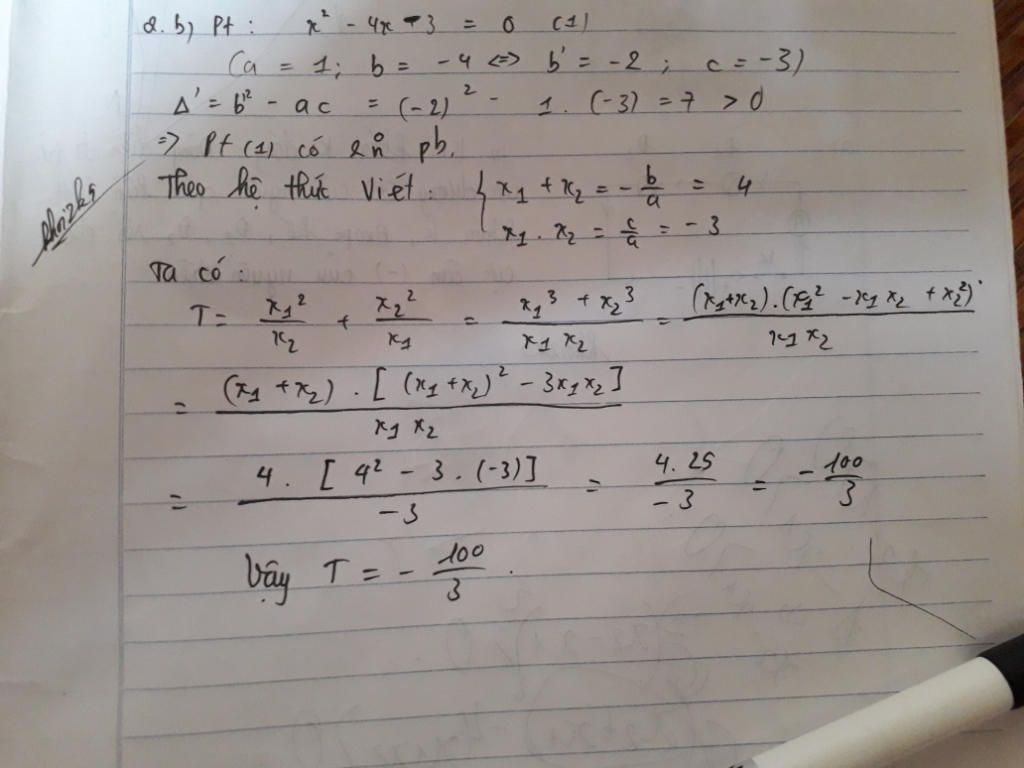 2. b) Pt : x² - 4x - 3 = 0 (1)
(a = 1; b = -4 <=> b' = -2 ; c = -3)
Δ' = b'² - ac = (-2)² - 1. (-3) = 7 > 0
=> Pt (1) có 2 n° pb.
Theo hệ thức Viét : { x₁ + x₂ = - b/a = 4
x₁ . x₂ = c/a = -3
Ta có :
T = x₁²/x₂ + x₂²/x₁ = (x₁³ + x₂³)/(x₁ x₂) = ((x₁+x₂).(x₁² - x₁ x₂ + x₂²))/(x₁ x₂)
= ((x₁ + x₂) . [(x₁+x₂)² - 3x₁x₂])/(x₁ x₂)
= (4 . [4² - 3 . (-3)])/(-3) = (4. 25)/(-3) = - 100/3
Vậy T = - 100/3 .